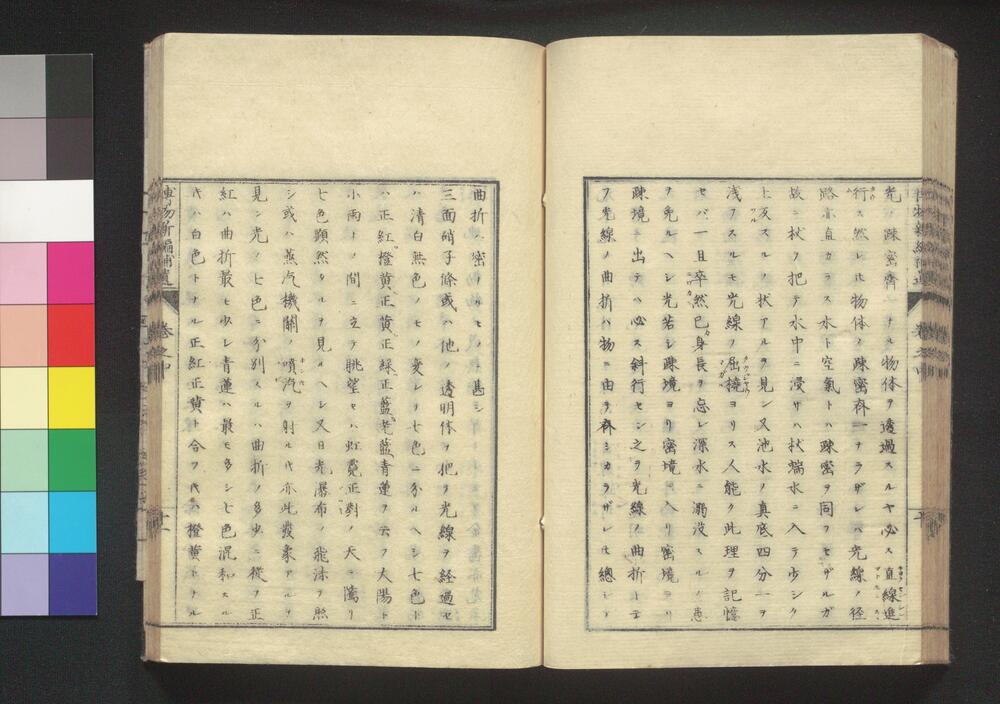 光ノ疎密齊一ナル物体ヲ透過スルヤ必ス直線進
行ス然レ𪜈物体ノ疎密齊一ナラザレハ光線ノ径
路亦直カラス水ト空氣トハ疎密ヲ同フセザルガ
故ニ杖ヲ把テ水中ニ浸サハ杖端水ニ入テ少シク
上反スルノ状アルヲ見ン又池水ノ真底四分一ヲ
浅フスルモ光線ノ屈撓ヨリス人能ク此理ヲ記憶
セバ一旦卒然已身長ヲ忘レ深水ニ溺没スルノ患
ヲ免ルヘシ光若シ疎境ヨリ密境ニ入リ密境ヨリ
疎境ニ出テハ必ス斜行セン之ヲ光線ノ曲折ト云
フ光線ノ曲折ハ物ニ由テ齊シカラザレ𪜈總シテ
曲折ハ密ノ甚シ
三面硝子條或ハ他ノ透明体ヲ把ヲ光線ヲ経過セ
ハ清白無色ノモノ変シリ七色ニ分ルヘシ七色ト
ハ正紅橙黄正黄正緑正藍老藍青蓮ヲ云フ大陽ト
小雨トノ間ニ立テ眺望セハ虹霓正對ノ天ニ隋リ
七色顕然タルヲ見ルヘシ又日光瀑布ノ飛沫ヲ照
シ或ハ蒸汽機關ノ噴汽ヲ射ル代亦此發象アルヲ
見ン光ノ七色ニ分別スルハ曲折ノ多少ニ從フ正
紅ハ曲折最モ少レ青蓮ハ最モ多シ七色混和スル
代ハ白色トナル正紅正黄ト合フ代ハ橙黄トナル
博物新編補遺
卷之中